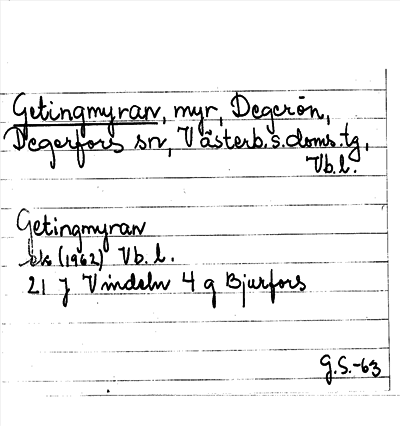 Getingmyran, myr, Degerön,
Degerfors sn, Västerb.s.doms.tg,
Vb.l.
Getingmyran
(1962) Vb.l.
21 J Vindeln 4 g Bjurfors
G.S.-63